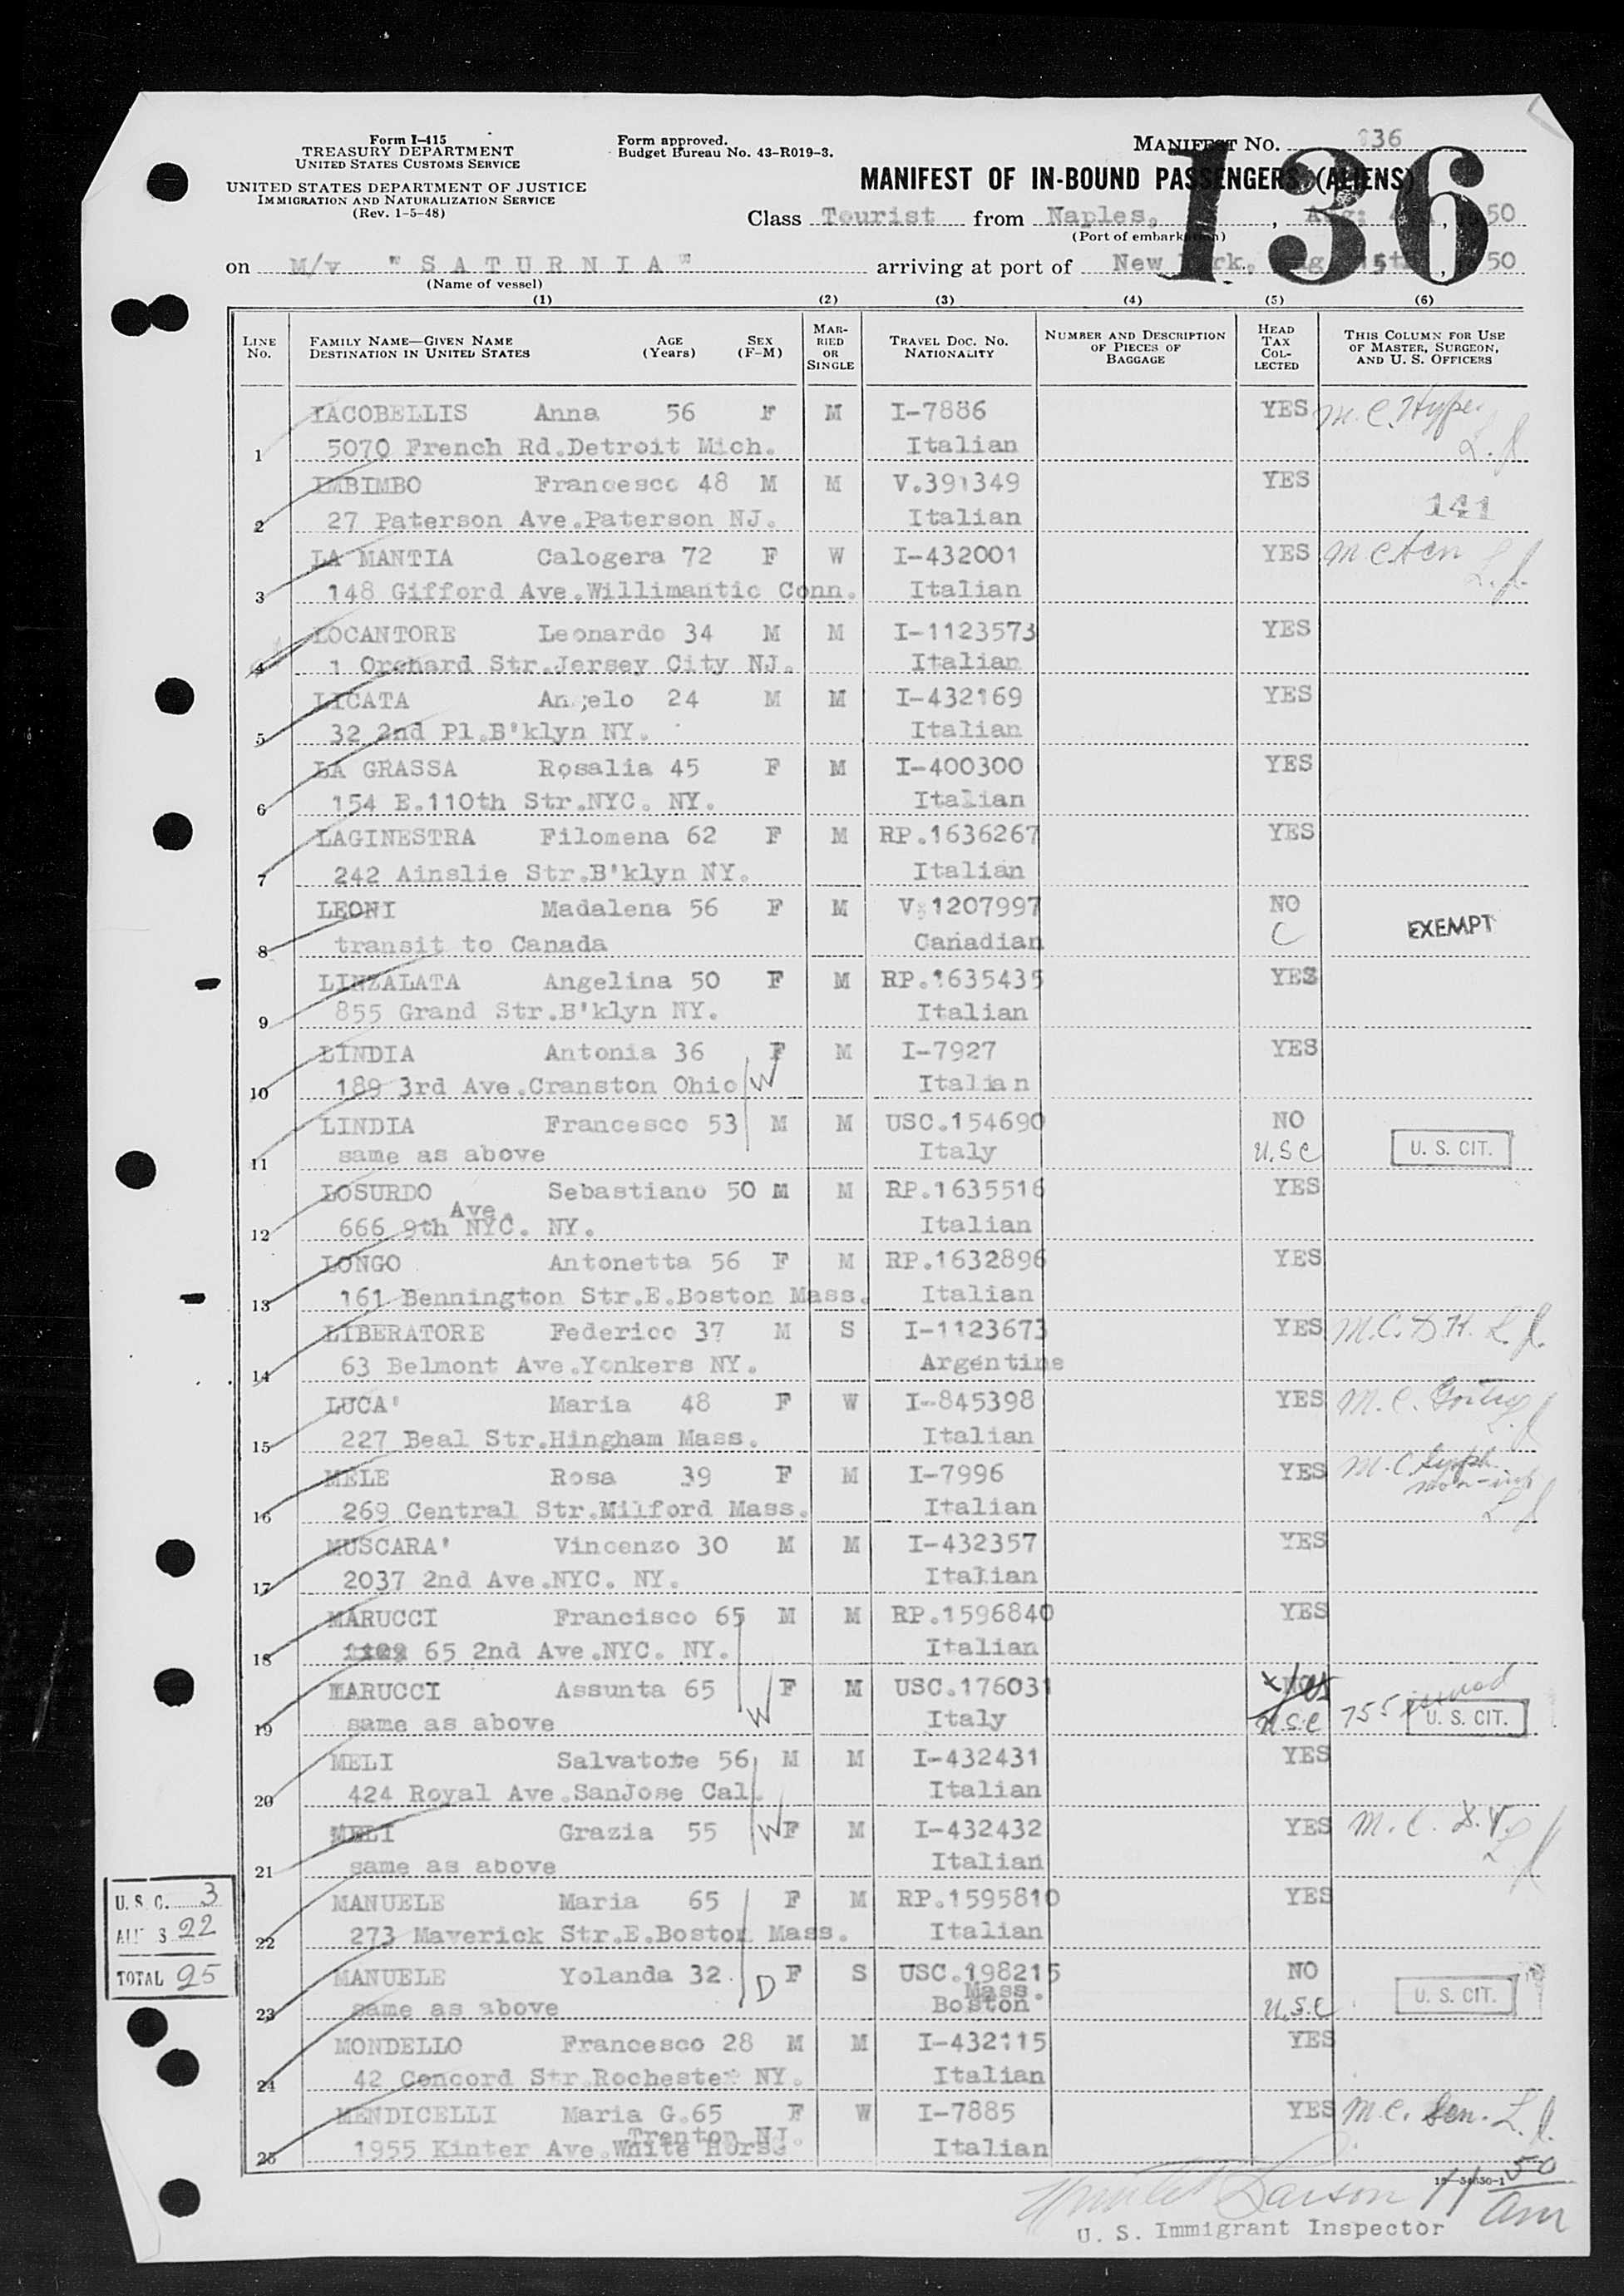 Form I-415
TREASURY DEPARTMENT
UNITED STATES CUSTOMS SERVICE
UNITED STATES DEPARTMENT OF JUSTICE
IMMIGRATION AND NATURALIZATION SERVICE
(Rev. 1-5-48)
Form approved.
Budget Bureau No. 43-R019-3.
MANIFEST NO. 136
136
MANIFEST OF IN-BOUND PASSENGERS (ALIENS)
Class Tourist from Naples, , Aug: , 1950
(Port of embarkation)
on M/v "SATURNIA" arriving at port of New York, Aug. 15th, 1950
(Name of vessel)
(1) (2) (3) (4) (5) (6)
LINE No. FAMILY NAME—GIVEN NAME DESTINATION IN UNITED STATES AGE (Years) SEX (F-M) MARRIED OR SINGLE TRAVEL DOC. NO. NATIONALITY NUMBER AND DESCRIPTION OF PIECES OF BAGGAGE HEAD TAX COLLECTED THIS COLUMN FOR USE OF MASTER, SURGEON, AND U. S. OFFICERS
IACOBELLIS Anna 56 F M I-7886 YES M.C. Hyper
1 5070 French Rd.Detroit Mich. Italian L.J.
IMBIMBO Francesco 48 M M V.391349 YES
2 27 Paterson Ave.Paterson NJ. Italian 141
LA MANTIA Calogera 72 F W I-432001 YES M C Sen
3 148 Gifford Ave.Willimantic Conn. Italian L.J.
LOCANTORE Leonardo 34 M M I-1123573 YES
4 1 Orchard Str.Jersey City NJ. Italian
LICATA Angelo 24 M M I-432169 YES
5 32 2nd Pl.B'klyn NY. Italian
LA GRASSA Rosalia 45 F M I-400300 YES
6 154 E.110th Str.NYC. NY. Italian
LAGINESTRA Filomena 62 F M RP.1636267 YES
7 242 Ainslie Str.B'klyn NY. Italian
LEONI Madalena 56 F M V:1207997 NO
8 transit to Canada Canadian C EXEMPT
LINZALATA Angelina 50 F M RP.1635435 YES
9 855 Grand Str.B'klyn NY. Italian
LINDIA Antonia 36 F M I-7927 YES
10 189 3rd Ave.Cranston Ohio W Italian
LINDIA Francesco 53 M M USC.154690 NO
11 same as above Italy U.S.C U. S. CIT.
LOSURDO Sebastiano 50 M M RP.1635516 YES
12 666 9th Ave. NYC. NY. Italian
LONGO Antonetta 56 F M RP.1632896 YES
13 161 Bennington Str.E.Boston Mass. Italian
LIBERATORE Federico 37 M S I-1123673 YES M.C. D H. L.J.
14 63 Belmont Ave.Yonkers NY. Argentine
LUCA' Maria 48 F W I-845398 YES M.C.
15 227 Beal Str.Hingham Mass. Italian L.J.
MELE Rosa 39 F M I-7996 YES M.C. Syph. non-inf
16 269 Central Str.Milford Mass. Italian L J
MUSCARA' Vincenzo 30 M M I-432357 YES
17 2037 2nd Ave.NYC. NY. Italian
MARUCCI Francisco 65 M M RP.1596840 YES
18 65 2nd Ave.NYC. NY. Italian
MARUCCI Assunta 65 W F M USC.176031 Yes
19 same as above Italy U.S.C 755 issued U. S. CIT.
MELI Salvatore 56 M M I-432431 YES
20 424 Royal Ave.SanJose Cal. Italian
MELI Grazia 55 W F M I-432432 YES M. C. L J
21 same as above Italian
MANUELE Maria 65 F M RP.1595810 YES
22 273 Maverick Str.E.Boston Mass. Italian
MANUELE Yolanda 32. D F S USC.198215 NO
23 same as above Boston Mass. U.S.C. U. S. CIT.
MONDELLO Francesco 28 M M I-432115 YES
24 42 Concord Str.Rochester NY. Italian
MENDICELLI Maria G.65 F W I-7885 YES M.C. Sen. L.J.
25 1955 Kinter Ave.White Horse Trenton NJ. Italian
U. S. C. 3
ALIENS 22
TOTAL 25
16—54650-1
Larson 11 50 am
U. S. Immigrant Inspector